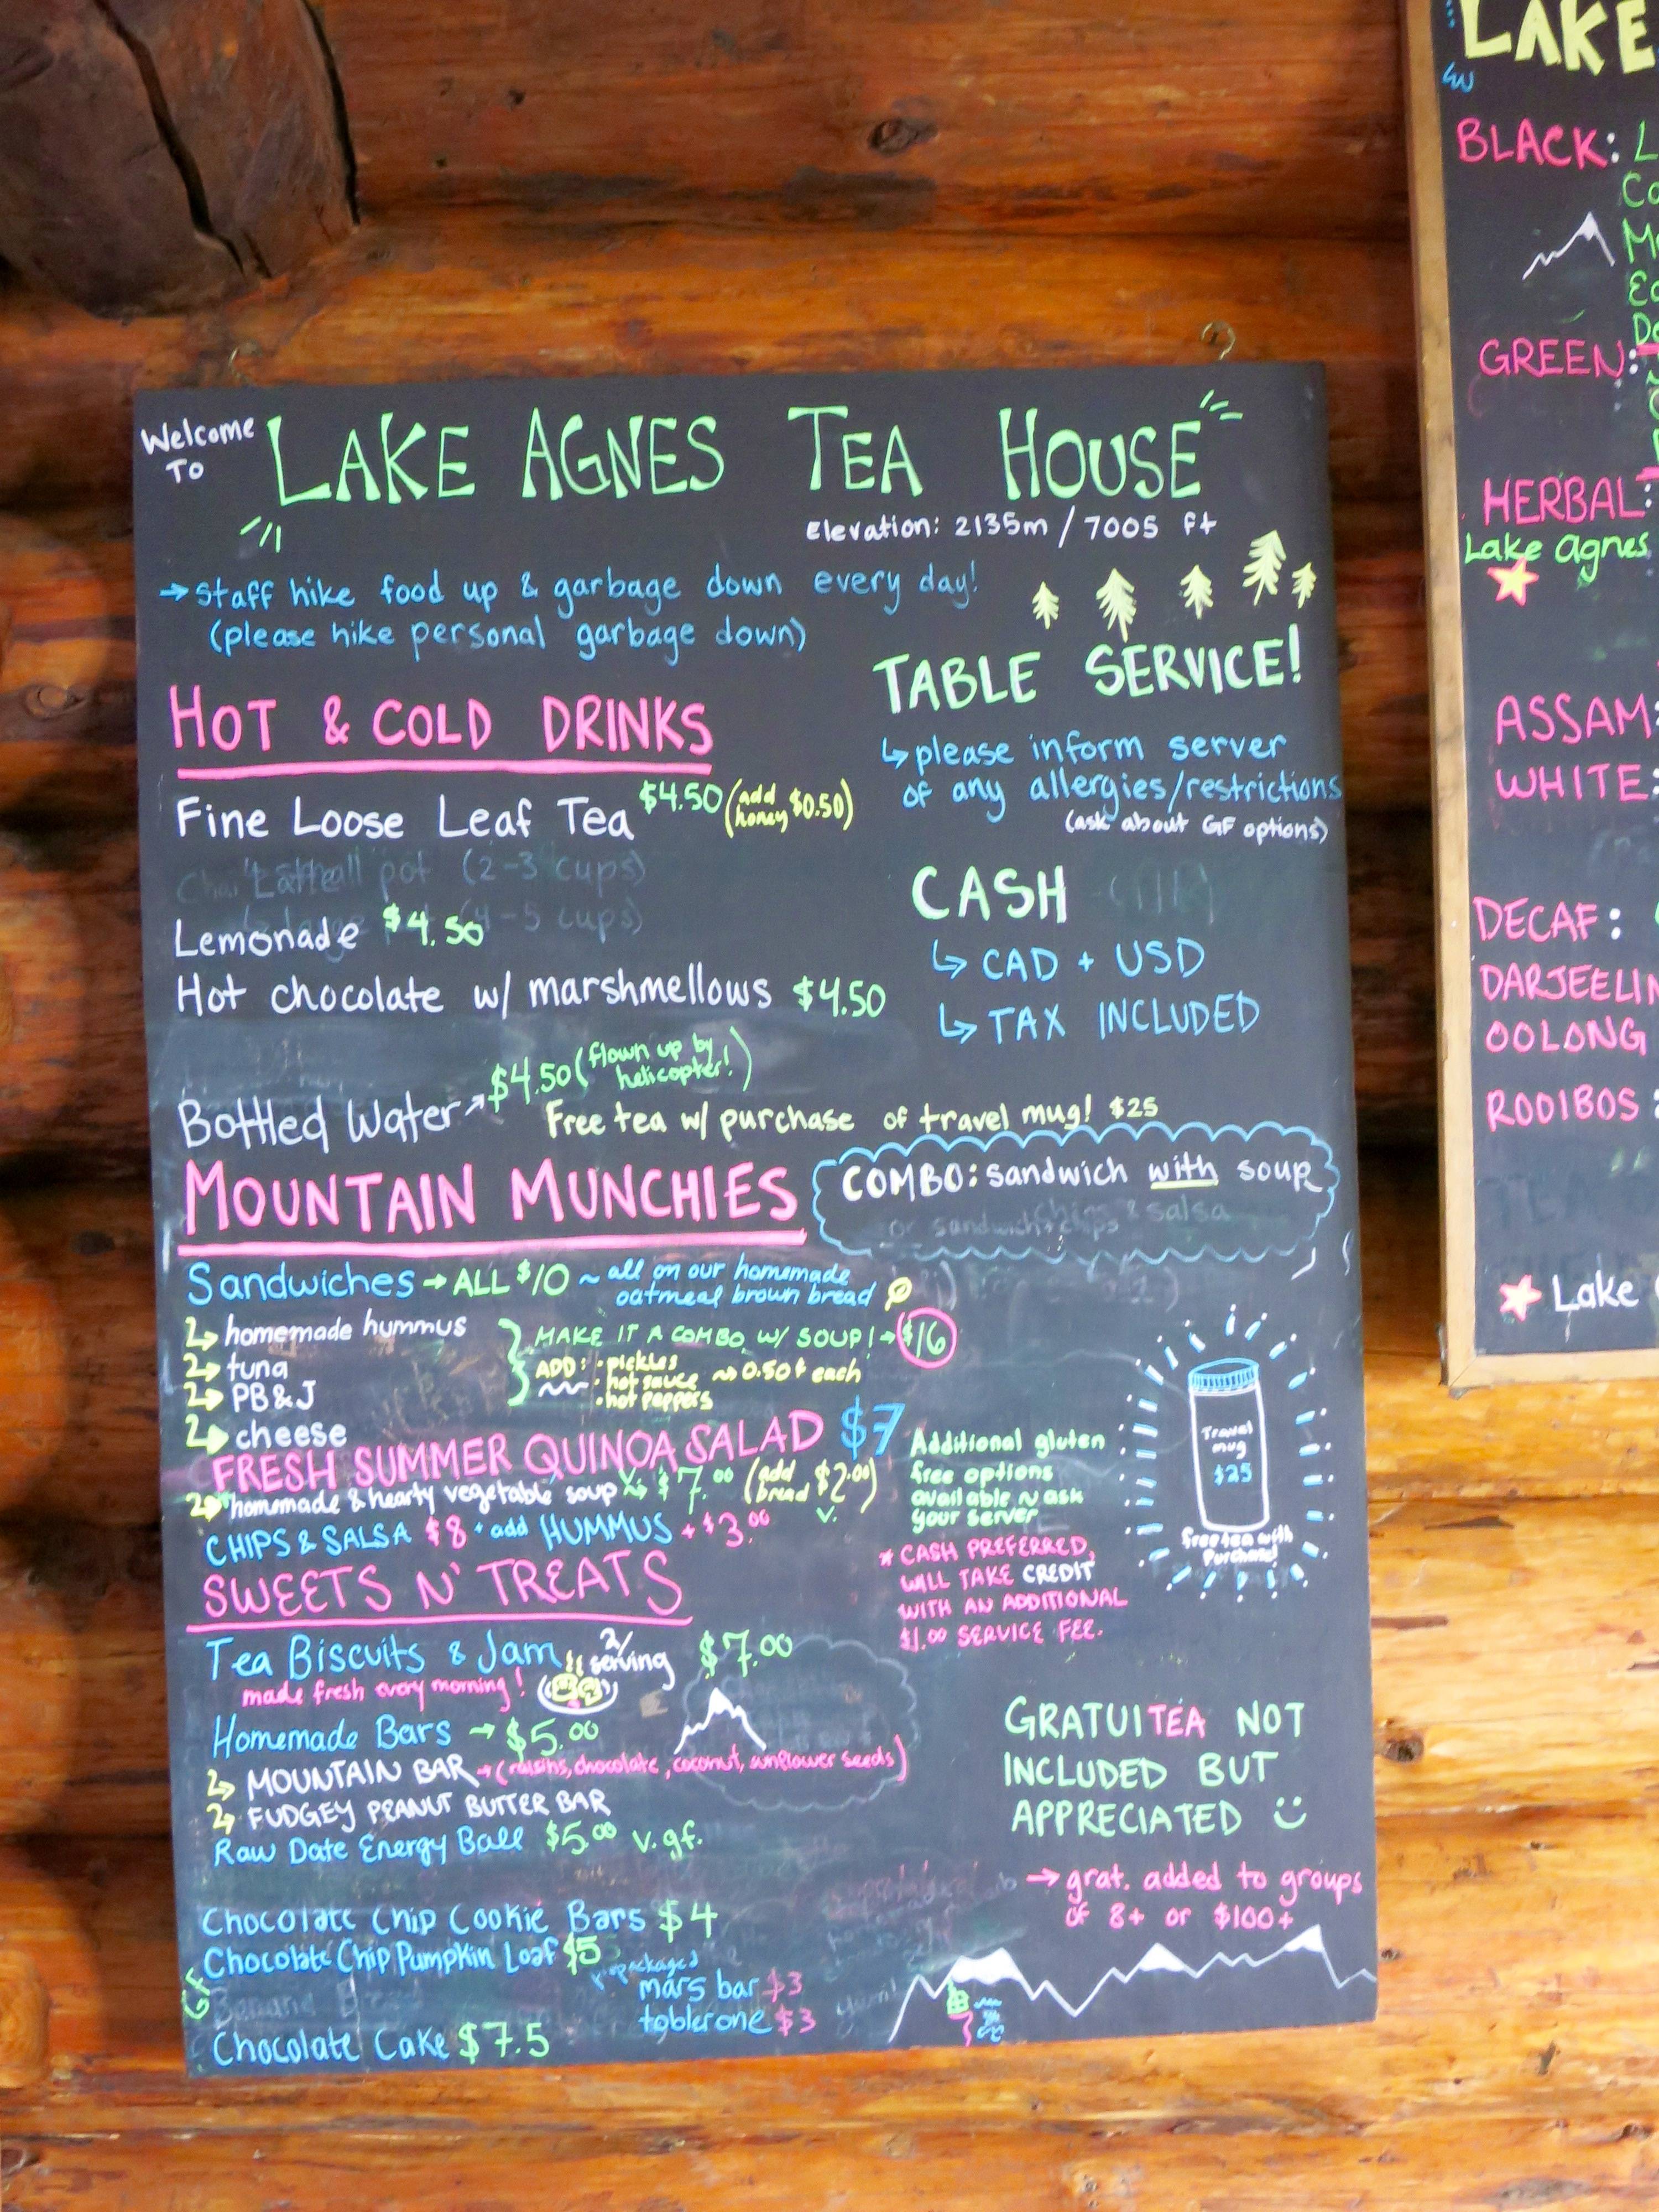 Welcome To LAKE AGNES TEA HOUSE
Elevation: 2135m / 7005 ft
→ staff hike food up & garbage down every day!
(please hike personal garbage down)
HOT & COLD DRINKS
Fine Loose Leaf Tea $4.50 (add honey $0.50)
pot (2-3 cups)
(4-5 cups)
Lemonade $4.50
Hot chocolate w/ marshmellows $4.50
Bottled Water → $4.50 (flown up by helicopter!)
Free tea w/ purchase of travel mug! $25
TABLE SERVICE!
↳ please inform server
of any allergies/restrictions
(ask about GF options)
CASH
↳ CAD + USD
↳ TAX INCLUDED
MOUNTAIN MUNCHIES
COMBO: sandwich with soup
Sandwiches → ALL $10 ~ all on our homemade
oatmeal brown bread
↳ homemade hummus
↳ tuna
↳ PB&J
↳ cheese
MAKE IT A COMBO w/ SOUP! → $16
ADD: • pickles
• hot sauce ~> 0.50¢ each
• hot peppers
FRESH SUMMER QUINOA SALAD $7
↳ homemade & hearty vegetable soup $7.00 (add bread $2.00)
v.
CHIPS & SALSA $8 + add HUMMUS + $3.00
Additional gluten
free options
available ~ ask
your server
* CASH PREFERRED,
WILL TAKE CREDIT
WITH AN ADDITIONAL
$1.00 SERVICE FEE.
Travel
mug
$25
free tea with
Purchase!
SWEETS N' TREATS
Tea Biscuits & Jam 2/serving $7.00
made fresh every morning!
Homemade Bars → $5.00
↳ MOUNTAIN BAR → (raisins, chocolate, coconut, sunflower seeds)
↳ FUDGEY PEANUT BUTTER BAR
Raw Date Energy Ball $5.00 v. gf.
Chocolate Chip Cookie Bars $4
Chocolate Chip Pumpkin Loaf $5
GF
Chocolate Cake $7.5
packaged
mars bar $3
toblerone $3
GRATUITEA NOT
INCLUDED BUT
APPRECIATED
→ grat. added to groups
of 8+ or $100+
LAKE
BLACK:
GREEN:
HERBAL:
Lake Agnes
ASSAM:
WHITE:
DECAF:
OOLONG
ROOIBOS:
Lake